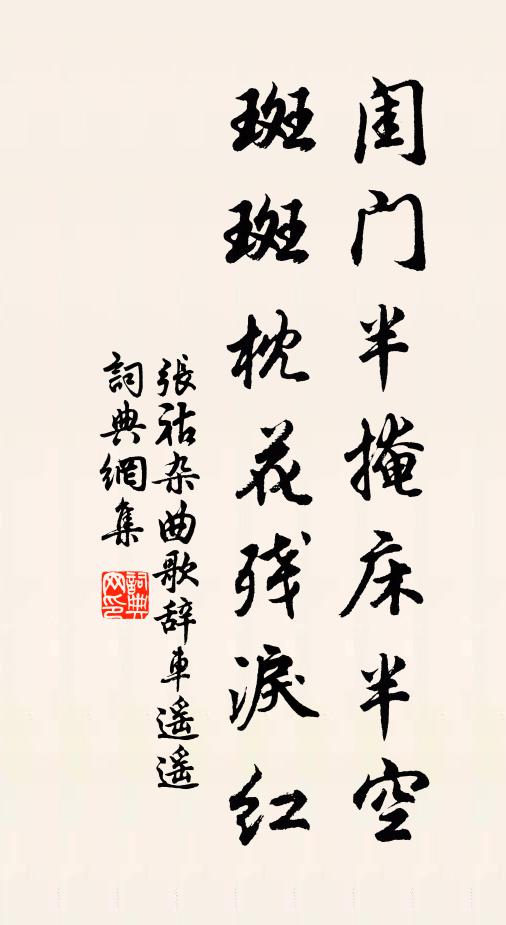 闺门半掩床半空
斑斑枕花残淚红
張祜杂曲歌辞車遥遥
詞典網集
詞典网印